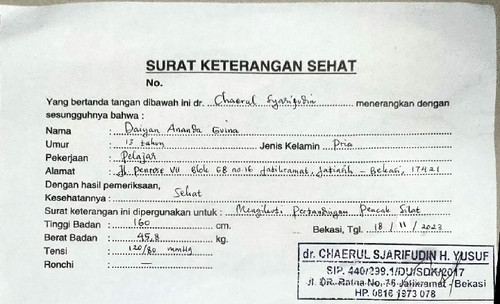 SURAT KETERANGAN SEHAT
No.
Yang bertanda tangan dibawah ini dr. Chaerul Syarifudin menerangkan dengan
sesungguhnya bahwa :
Nama : Daiyan Ananda Guina
Umur : 15 tahun Jenis Kelamin : Pria
Pekerjaan : Pelajar
Alamat : Jl. Penrose VII Blok GB no 16 Jatikramat, Jatiasih - Bekasi, 17421
Dengan hasil pemeriksaan,
Kesehatannya : Sehat
Surat keterangan ini dipergunakan untuk : Mengikuti Pertandingan Pencak Silat
Tinggi Badan : 160 cm. Bekasi, Tgl. 18 / 11 / 2023
Berat Badan : 45,8 kg.
Tensi : 120/80 mmHg
Ronchi : —
dr. CHAERUL SJARIFUDIN H. YUSUF
SIP. 440/299.1/DU/SDK/2017
Jl. DR. Ratna No. 76 Jatikramat - Bekasi
HP. 0816 1973 078